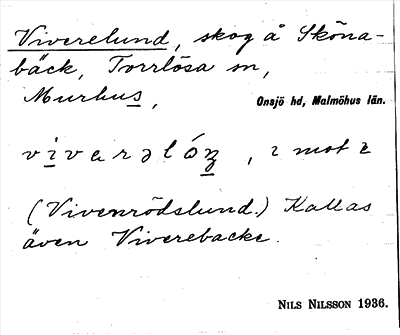 Viverelund, skog å Sköna-
bäck, Torrlösa sn,
Murhus,
Onsjö hd, Malmöhus län.
, ɩ mot
(Vivenrödslund.) Kallas
även Viverebacke.
NILS NILSSON 1936.